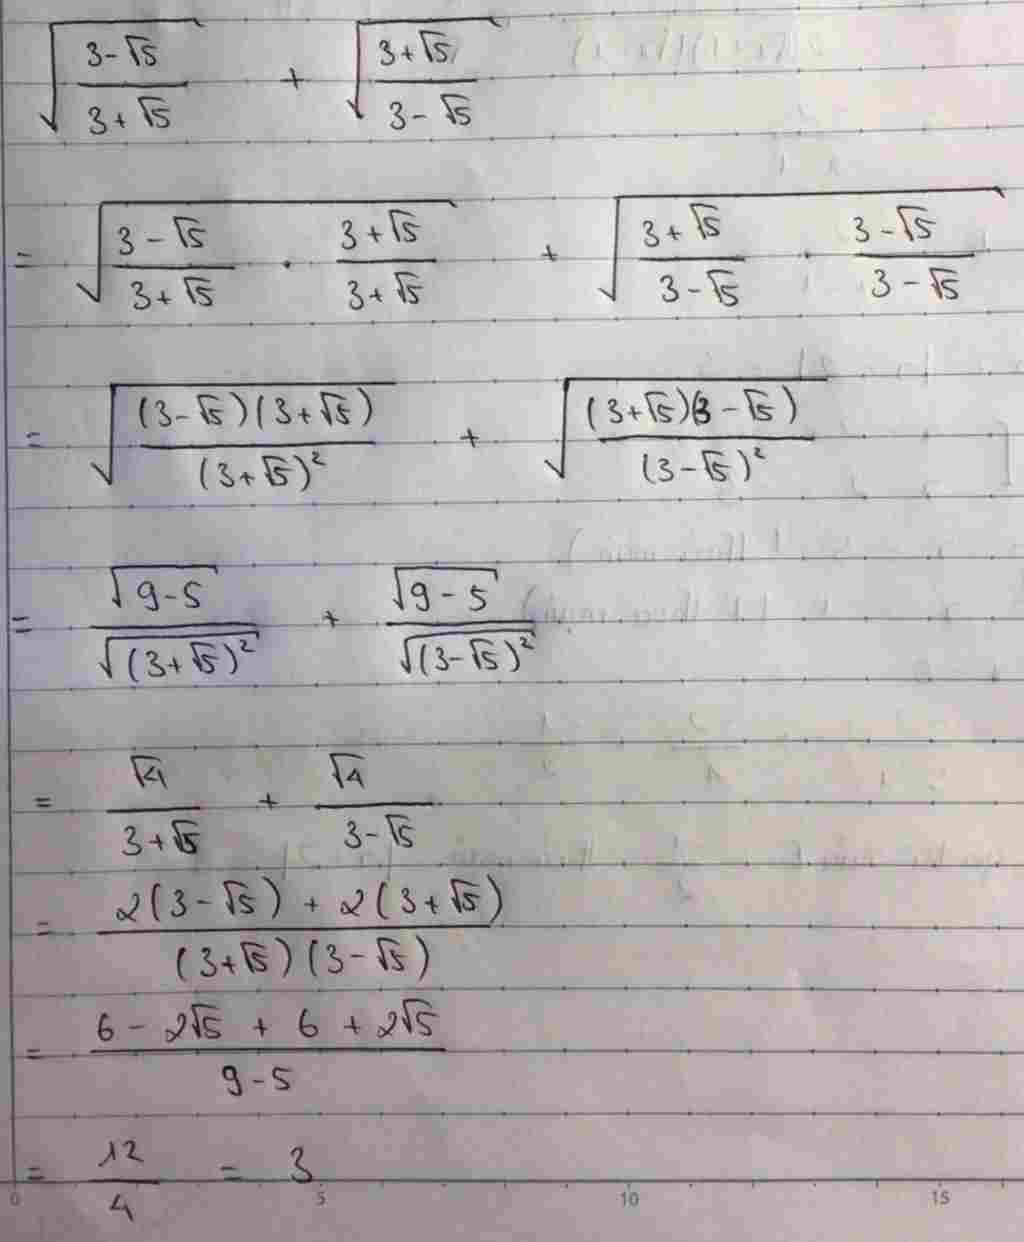 √((3-√5)/(3+√5)) + √((3+√5)/(3-√5))
= √((3-√5)/(3+√5) · (3+√5)/(3+√5)) + √((3+√5)/(3-√5) · (3-√5)/(3-√5))
= √((3-√5)(3+√5)/(3+√5)²) + √((3+√5)(3-√5)/(3-√5)²)
= √(9-5)/√((3+√5)²) + √(9-5)/√((3-√5)²)
= √4/(3+√5) + √4/(3-√5)
= (2(3-√5) + 2(3+√5))/((3+√5)(3-√5))
= (6 - 2√5 + 6 + 2√5)/(9-5)
= 12/4 = 3
0 5 10 15